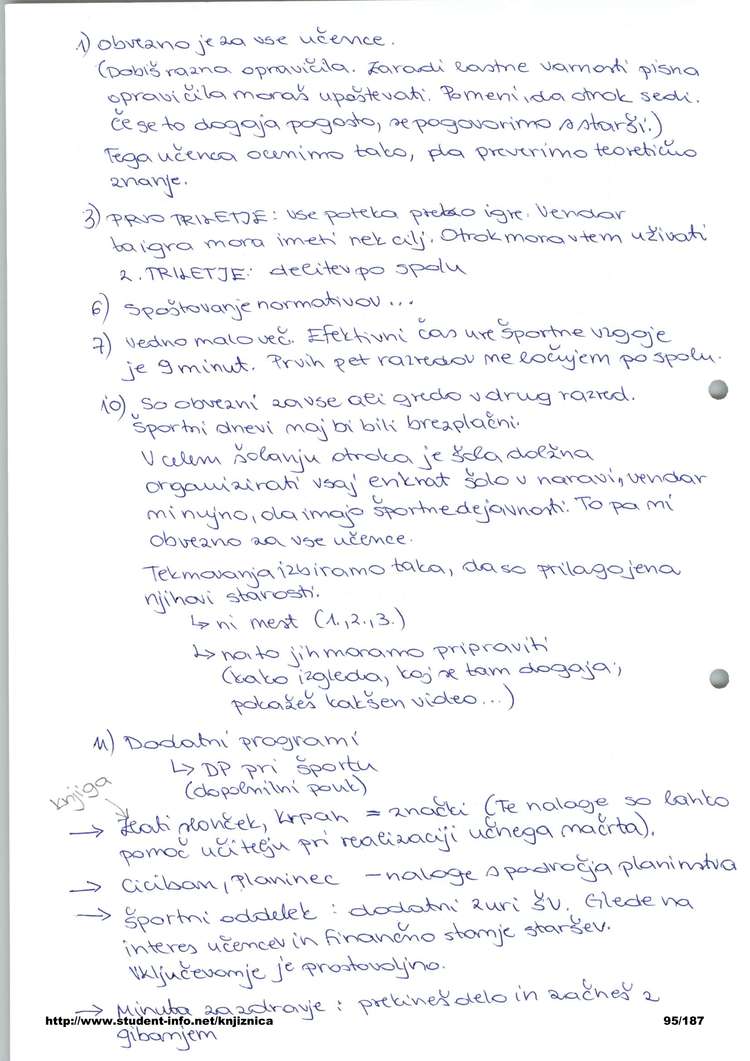 1) Obvezno je za vse učence.
(Dobiš razna opravičila. Zaradi lastne varnosti pisna
opravičila moraš upoštevati. Pomeni, da otrok sedi.
Če se to dogaja pogosto, se pogovorimo s starši.)
Tega učenca ocenimo tako, da preverimo teoretično
znanje.
3) PRVO TRILETJE: vse poteka preko igre. Vendar
ta igra mora imeti nek cilj. Otrok mora v tem uživati
2. TRILETJE: delitev po spolu
6) Spoštovanje normativov...
7) Vedno malo več. Efektivni čas ure športne vzgoje
je 9 minut. Prvih pet razredov ne ločujem po spolu.
10) So obvezni za vse ali gredo v drug razred.
Športni dnevi naj bi bili brezplačni.
V celem šolanju otroka je šola dolžna
organizirati vsaj enkrat šolo v naravi, vendar
ni nujno, da imajo športne dejavnosti. To pa ni
obvezno za vse učence.
Tekmovanja izbiramo taka, da so prilagojena
njihovi starosti.
↳ ni mest (1., 2., 3.)
↳ na to jih moramo pripraviti
(kako izgleda, kaj se tam dogaja,
pokažeš kakšen video...)
11) Dodatni programi
↳ DP pri športu
(dopolnilni pouk)
knjiga
→ Zlati sonček, Krpan = znački (Te naloge so lahko
pomoč učitelju pri realizaciji učnega načrta).
→ Ciciban, Planinec - naloge s področja planinstva
→ Športni oddelek : dodatni 2 uri ŠV. Glede na
interes učencev in finančno stanje staršev.
Vključevanje je prostovoljno.
→ Minuta za zdravje : prekineš delo in začneš z
gibanjem
http://www.student-info.net/knjiznica 95/187